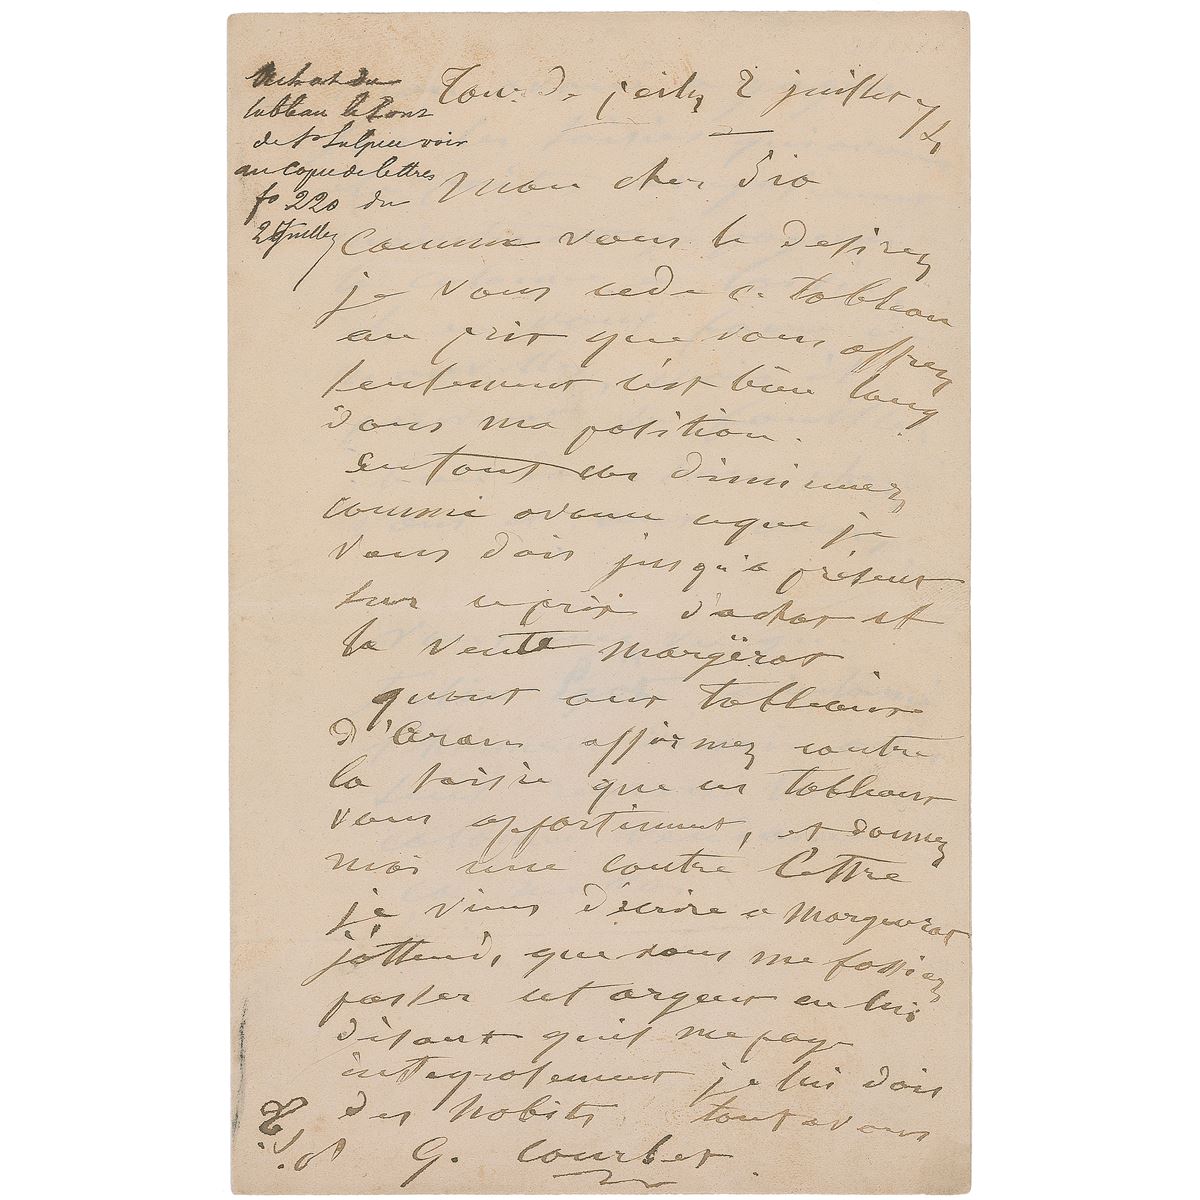 Achat du
tableau le Pont
de St Sulpice voir
au copie de lettres
fo 220 du
Juillet
Tour de peilz 2 juillet 74
Mon cher Bio
Comme vous le desirez
je vous cede ce tableau
au prix que vous offrez
seulement c'est bien long
dans ma position.
en tout cas diminuez
comme avance ce que je
vous dois jusqu'a présent
sur ce prix d'achat et
la vente margerat
quant aux tableaux
d'Ornans affirmez contre
la saisie que ces tableaux
vous appartinent, et donnez
moi une contre lettre
je viens d'écrire a Marguerat
j'attend, que vous me fassiez
passer cet argent en lui
disant quil me paye
integralement je lui dois
des habits tout a vous
G. Courbet.